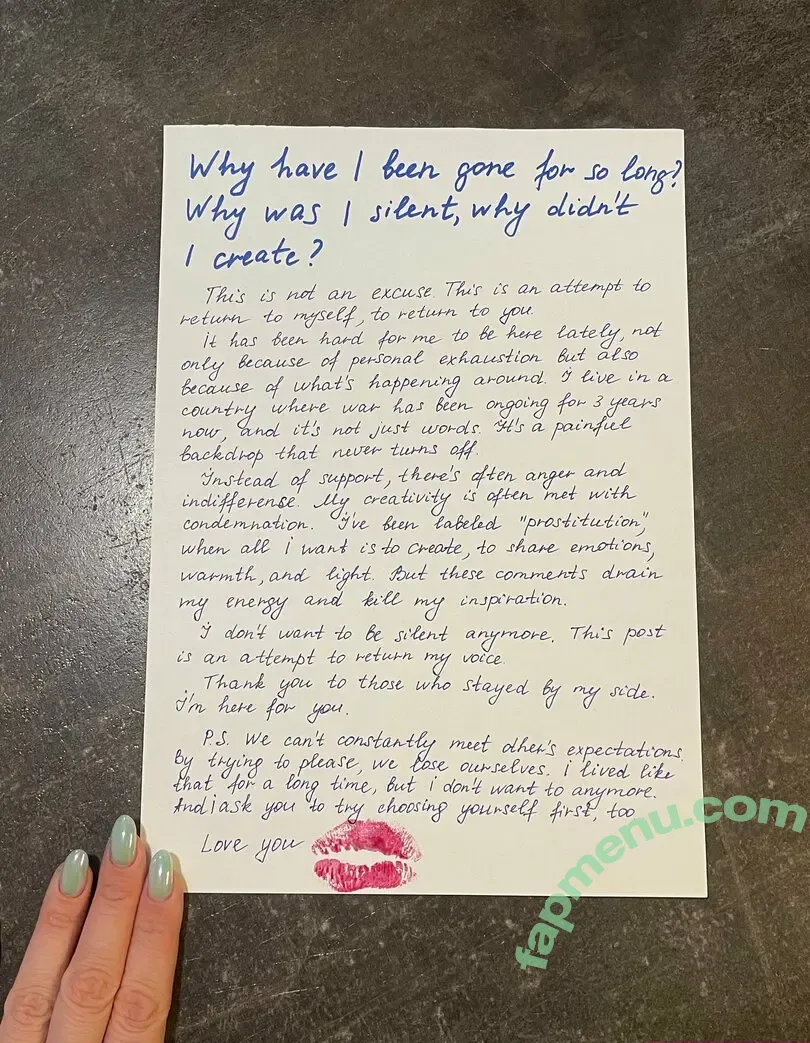 Why have I been gone for so long?
Why was I silent, why didn't
I create?
This is not an excuse. This is an attempt to
return to myself, to return to you.
It has been hard for me to be here lately, not
only because of personal exhaustion but also
because of what's happening around. I live in a
country where war has been ongoing for 3 years
now, and it's not just words. It's a painful
backdrop that never turns off.
Instead of support, there's often anger and
indifferense. My creativity is often met with
condemnation. I've been labeled "prostitution",
when all i want is to create, to share emotions,
warmth, and light. But these comments drain
my energy and kill my inspiration.
I don't want to be silent anymore. This post
is an attempt to return my voice.
Thank you to those who stayed by my side.
I'm here for you.
P.S. We can't constantly meet other's expectations.
By trying to please, we lose ourselves. i lived like
that for a long time, but i don't want to anymore.
And i ask you to try choosing yourself first, too
Love you
fapmenu.com